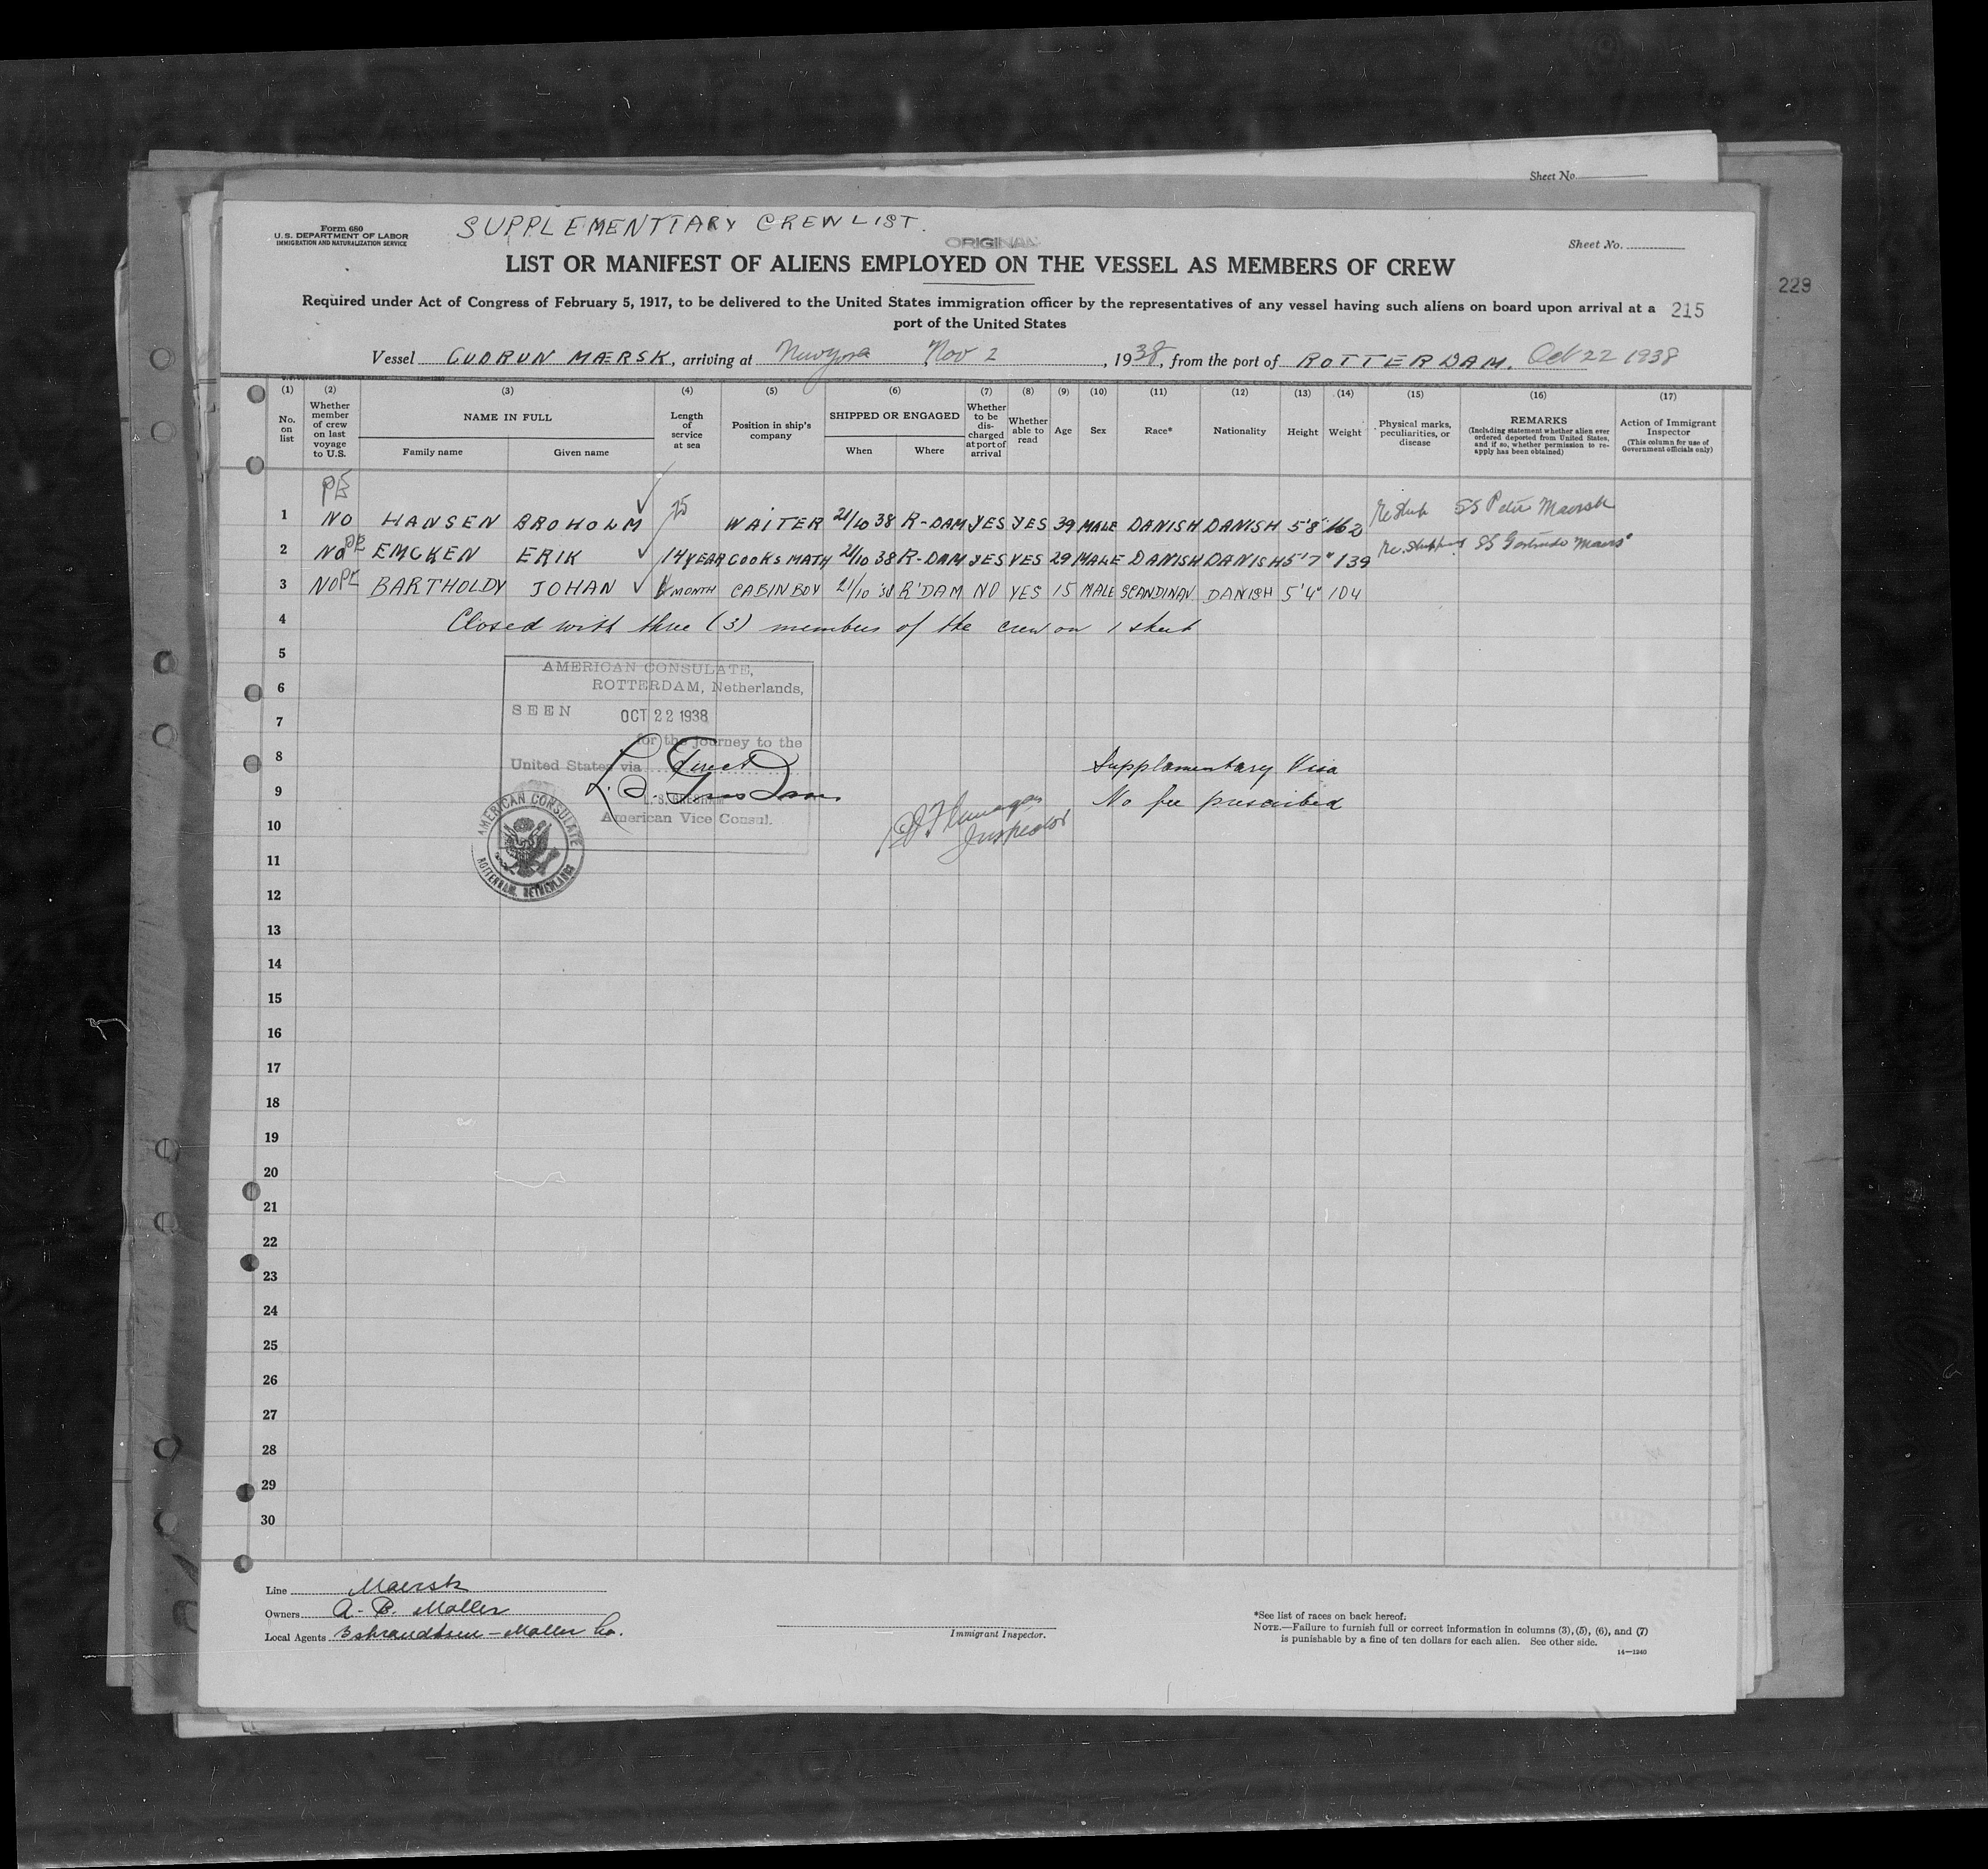 Sheet No.
Form 680
U.S. DEPARTMENT OF LABOR
IMMIGRATION AND NATURALIZATION SERVICE
SUPPLEMENTTARY CREW LIST.
ORIGINAL
Sheet No.
LIST OR MANIFEST OF ALIENS EMPLOYED ON THE VESSEL AS MEMBERS OF CREW
229
Required under Act of Congress of February 5, 1917, to be delivered to the United States immigration officer by the representatives of any vessel having such aliens on board upon arrival at a
port of the United States
215
Vessel GUDRUN MÆRSK, arriving at New York Nov 2, 1938, from the port of ROTTERDAM. Oct 22 1938
(1) (2) (3) (4) (5) (6) (7) (8) (9) (10) (11) (12) (13) (14) (15) (16) (17)
No. on list
Whether member of crew on last voyage to U.S.
NAME IN FULL
Family name
Given name
Length of service at sea
Position in ship's company
SHIPPED OR ENGAGED
When
Where
Whether to be discharged at port of arrival
Whether able to read
Age
Sex
Race*
Nationality
Height
Weight
Physical marks, peculiarities, or disease
REMARKS
(Including statement whether alien ever ordered deported from United States, and if so, whether permission to re-apply has been obtained)
Action of Immigrant Inspector
(This column for use of Government officials only)
PE
1 NO HANSEN BROHOLM 25 WAITER 21/10 38 R-DAM YES YES 39 MALE DANISH DANISH 5'8" 162 SS Peter Maersk
2 NO PE EMCKEN ERIK 14 YEAR COOKS MATH 21/10 38 R-DAM YES YES 29 MALE DANISH DANISH 5'7" 139 Re. Shipping SS Gertrude Maers
3 NO PE BARTHOLDY JOHAN MONTH CABIN BOY 21/10 '38 R'DAM NO YES 15 MALE SCANDINAV DANISH 5'4" 104
4 Closed with three (3) members of the crew on 1 sheet
5
6
7
8
9
10
11
12
13
14
15
16
17
18
19
20
21
22
23
24
25
26
27
28
29
30
AMERICAN CONSULATE,
ROTTERDAM, Netherlands,
SEEN OCT 22 1938
for the journey to the
United States via Direct
American Vice Consul.
AMERICAN CONSULATE
ROTTERDAM, NETHERLANDS
Supplamentary Visa
No fee prescribed
Inspector
Line Maersk
Owners A. P. Moller
Local Agents Isbrandtsen-Moller Co.
Immigrant Inspector.
*See list of races on back hereof.
NOTE.—Failure to furnish full or correct information in columns (3), (5), (6), and (7)
is punishable by a fine of ten dollars for each alien. See other side.
14—1240